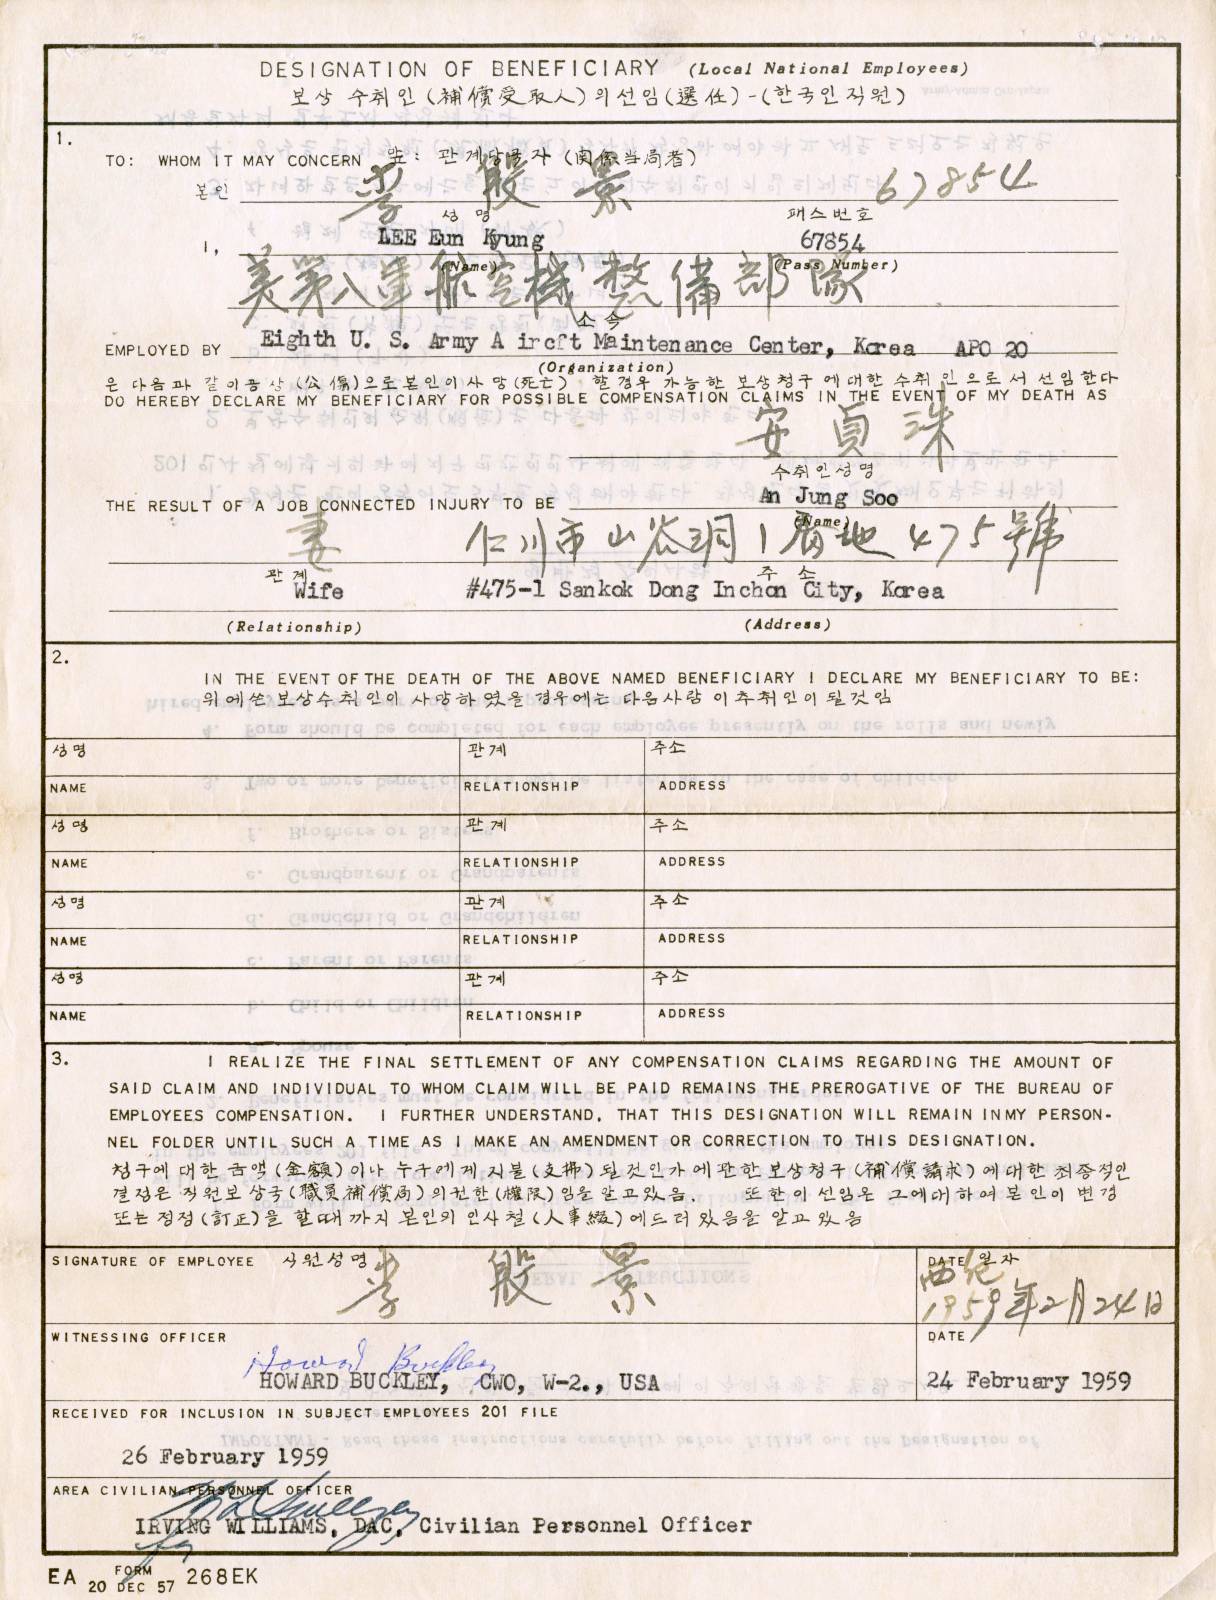 DESIGNATION OF BENEFICIARY (Local National Employees)
보상 수취인 (補償受取人) 의 선임 (選任) - (한국인 직원)
1.
TO: WHOM IT MAY CONCERN 앞: 관계당국자 (関係当局者)
본인 李殷景 67854
성명 패스번호
I, LEE Eun Kyung 67854
(Name) (Pass Number)
美第八軍航空機整備部隊
소속
EMPLOYED BY Eighth U. S. Army A ircft Maintenance Center, Korea APO 20
(Organization)
은 다음과 같이 공상 (公傷) 으로 본인이 사망 (死亡) 할 경우 가능한 보상청구에 대한 수취인으로서 선임한다
DO HEREBY DECLARE MY BENEFICIARY FOR POSSIBLE COMPENSATION CLAIMS IN THE EVENT OF MY DEATH AS
安貞洙
수취인성명
THE RESULT OF A JOB CONNECTED INJURY TO BE An Jung Soo
(Name)
妻 仁川市山谷洞1番地475号號
관계 주소
Wife #475-1 Sankok Dong Inchon City, Korea
(Relationship) (Address)
2.
IN THE EVENT OF THE DEATH OF THE ABOVE NAMED BENEFICIARY I DECLARE MY BENEFICIARY TO BE:
위에 쓴 보상수취인이 사망하였을 경우에는 다음사람이 추취인이 될것임
성명 관계 주소
NAME RELATIONSHIP ADDRESS
성명 관계 주소
NAME RELATIONSHIP ADDRESS
성명 관계 주소
NAME RELATIONSHIP ADDRESS
성명 관계 주소
NAME RELATIONSHIP ADDRESS
3. I REALIZE THE FINAL SETTLEMENT OF ANY COMPENSATION CLAIMS REGARDING THE AMOUNT OF
SAID CLAIM AND INDIVIDUAL TO WHOM CLAIM WILL BE PAID REMAINS THE PREROGATIVE OF THE BUREAU OF
EMPLOYEES COMPENSATION. I FURTHER UNDERSTAND, THAT THIS DESIGNATION WILL REMAIN IN MY PERSON-
NEL FOLDER UNTIL SUCH A TIME AS I MAKE AN AMENDMENT OR CORRECTION TO THIS DESIGNATION.
청구에 대한 금액 (金額) 이나 누구에게 지불 (支拂) 될것인가에 관한 보상청구 (補償請求) 에 대한 최종적인
결정은 직원보상국 (職員補償局) 의 권한 (權限) 임을 알고 있음. 또한 이 선임은 그에 대하여 본인이 변경
또는 정정 (訂正) 을 할때 까지 본인의 인사철 (人事綴) 에 드러 있음을 알고 있음
SIGNATURE OF EMPLOYEE 직원성명 李殷景
DATE 일자
西紀
1959年2月24日
WITNESSING OFFICER DATE
Howard Buckley
HOWARD BUCKLEY, CWO, W-2., USA 24 February 1959
RECEIVED FOR INCLUSION IN SUBJECT EMPLOYEES 201 FILE
26 February 1959
AREA CIVILIAN PERSONNEL OFFICER
IRVING WILLIAMS, DAC, Civilian Personnel Officer
for
EA FORM 20 DEC 57 268EK